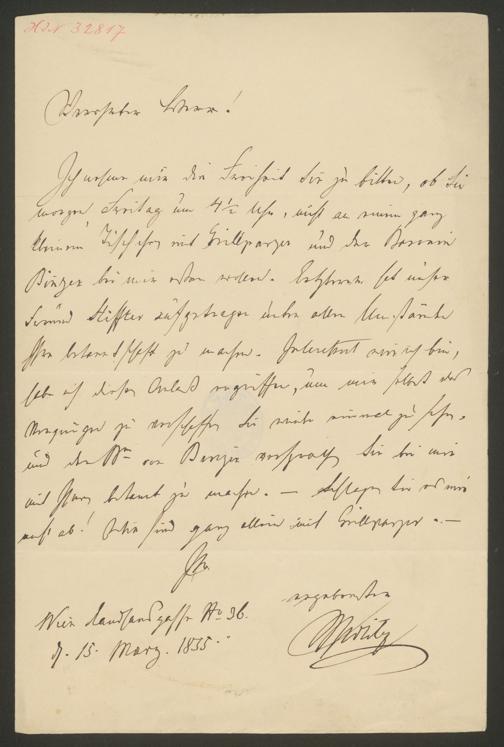 HIN 32817
Verehrter Herr!
Ich nehme mir die Freiheit Sie zu bitten, ob Sie
morgen Freitag um 4½ Uhr, mit an einem ganz
kleinen Tisch mit Grillparzer und der Baronin
bei mir essen wollen. hat unser
Freund Stifter aufgetragen unter allen Umständen
Ihre Bekanntschaft zu machen. wie ich bin,
habe ich diesen Anlaß ergriffen, um mir selbst das
Vergnügen zu verschaffen Sie wieder einmal zu sehen.
und der von Sie bei mir
mit Ihnen bekannt zu machen. — Schlagen Sie es mir
nicht ab! Sie sind ganz allein mit Grillparzer. —
Ihr
ergebenster
Wien Landhausgasse No 36.
d. 15. März. 1855.